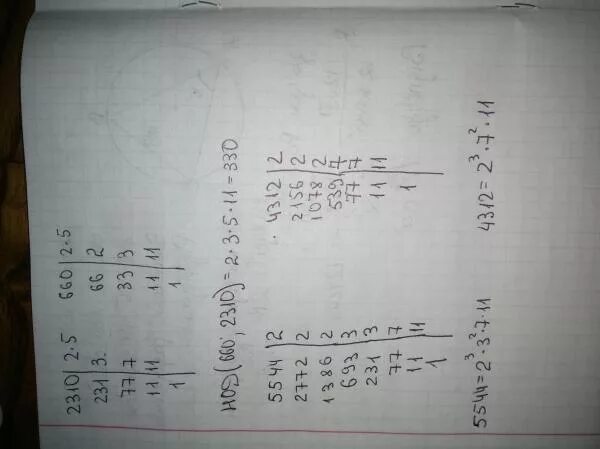 2310 | 2·5 660 | 2·5
231 | 3 66 | 2
77 | 7 33 | 3
11 | 11 11 | 11
1 1
НОД(660; 2310) = 2·3·5·11 = 330
5544 | 2 4312 | 2
2772 | 2 2156 | 2
1386 | 2 1078 | 2
693 | 3 539 | 7
231 | 3 77 | 7
77 | 7 11 | 11
11 | 11 1
1
5544 = 2³·3²·7·11 4312 = 2³·7²·11